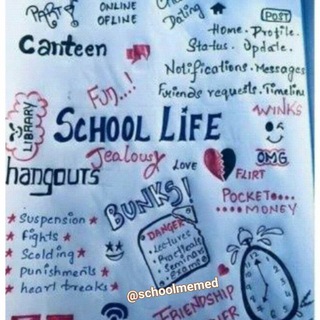 PARTY
ONLINE
OFLINE
Chatting
Dating
POST
Home. Profile.
Status. Update.
Canteen
Notifications. Messages
Friends requests. Timeline
Fun..!
WINKS
LIBRARY
SCHOOL LIFE
Jealousy
LOVE
OMG
FLIRT
hangouts
BUNKS!
POCKET....
....MONEY
DANGER
• Lectures
• Practicals
• Seminar
• Exams
★ Suspension ★
★ Fights ★
★ Scolding ★
★ punishments ★
★ heart breaks ★
@schoolmemed
FRIENDSHIP